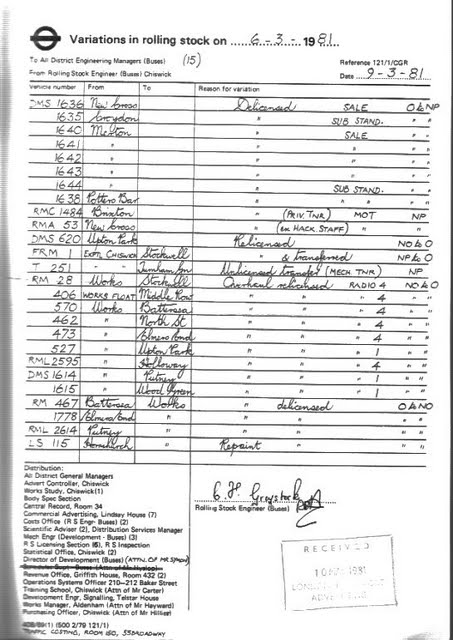 Variations in rolling stock on 6-3-1981
To All District Engineering Managers (Buses) (15)
Reference 121/1/CGR
From Rolling Stock Engineer (Buses) Chiswick
Date 9-3-81
Vehicle number From To Reason for variation
DMS 1636 New Cross Delicensed SALE O to NP
1635 Croydon " SUB STAND. " "
1640 Merton " SALE " "
1641 " " " "
1642 " " " "
1643 " " " "
1644 " " SUB STAND. " "
1638 Potters Bar " " "
RMC 1484 Brixton " (PRIV. TNR) MOT NP
RMA 53 New Cross " (ex HACK. STAFF) " "
DMS 620 Upton Park Relicensed NO to O
FRM 1 EXPTL CHISWICK Stockwell " & transferred NP to O
T 251 - Turnham Gn Unlicensed transfer (MECH TNR) NP
RM 28 Works Stockwell Overhaul relicensed RADIO 4 NO to O
406 WORKS FLOAT Middle Row " " " 4 " "
570 Works Battersea " " " 4 " "
462 " North St " " " 4 " "
473 " Elmers End " " " 4 " "
527 " Upton Park " " " 1 " "
RML 2595 " Holloway " " " 4 " "
DMS 1614 " Putney " " " 1 " "
1615 " Wood Green " " " 1 " "
RM 467 Battersea Works " delicensed O to NO
1778 Elmers End " " " " "
RML 2614 Putney " " " " "
LS 115 Hornchurch " Repaint " "
Distribution:
All District General Managers
Advert Controller, Chiswick
Works Study, Chiswick(1)
Body Spec Section
Central Record, Room 34
Commercial Advertising, Lindsay House (7)
Costs Office (R S Engr- Buses) (2)
Scientific Adviser (2), Distribution Services Manager
Mech Engr (Development - Buses) (3)
R S Licensing Section (6), R S Inspection
Statistical Office, Chiswick (2)
Director of Development (Buses) (ATTN. OF MR
Revenue Office, Griffith House, Room 432 (2)
Operations Systems Officer 210-212 Baker Street
Training School, Chiswick (Attn of Mr Carter)
Development Engr, Signalling, Telstar House
Works Manager, Aldenham (Attn of Mr Hayward)
Purchasing Officer, Chiswick (Attn of Mr Hillier)
(500 2/79 121/1)
TRAFFIC COSTING, ROOM 150, 55 BROADWAY
Rolling Stock Engineer (Buses)
RECEIVED
10 MAR 1981